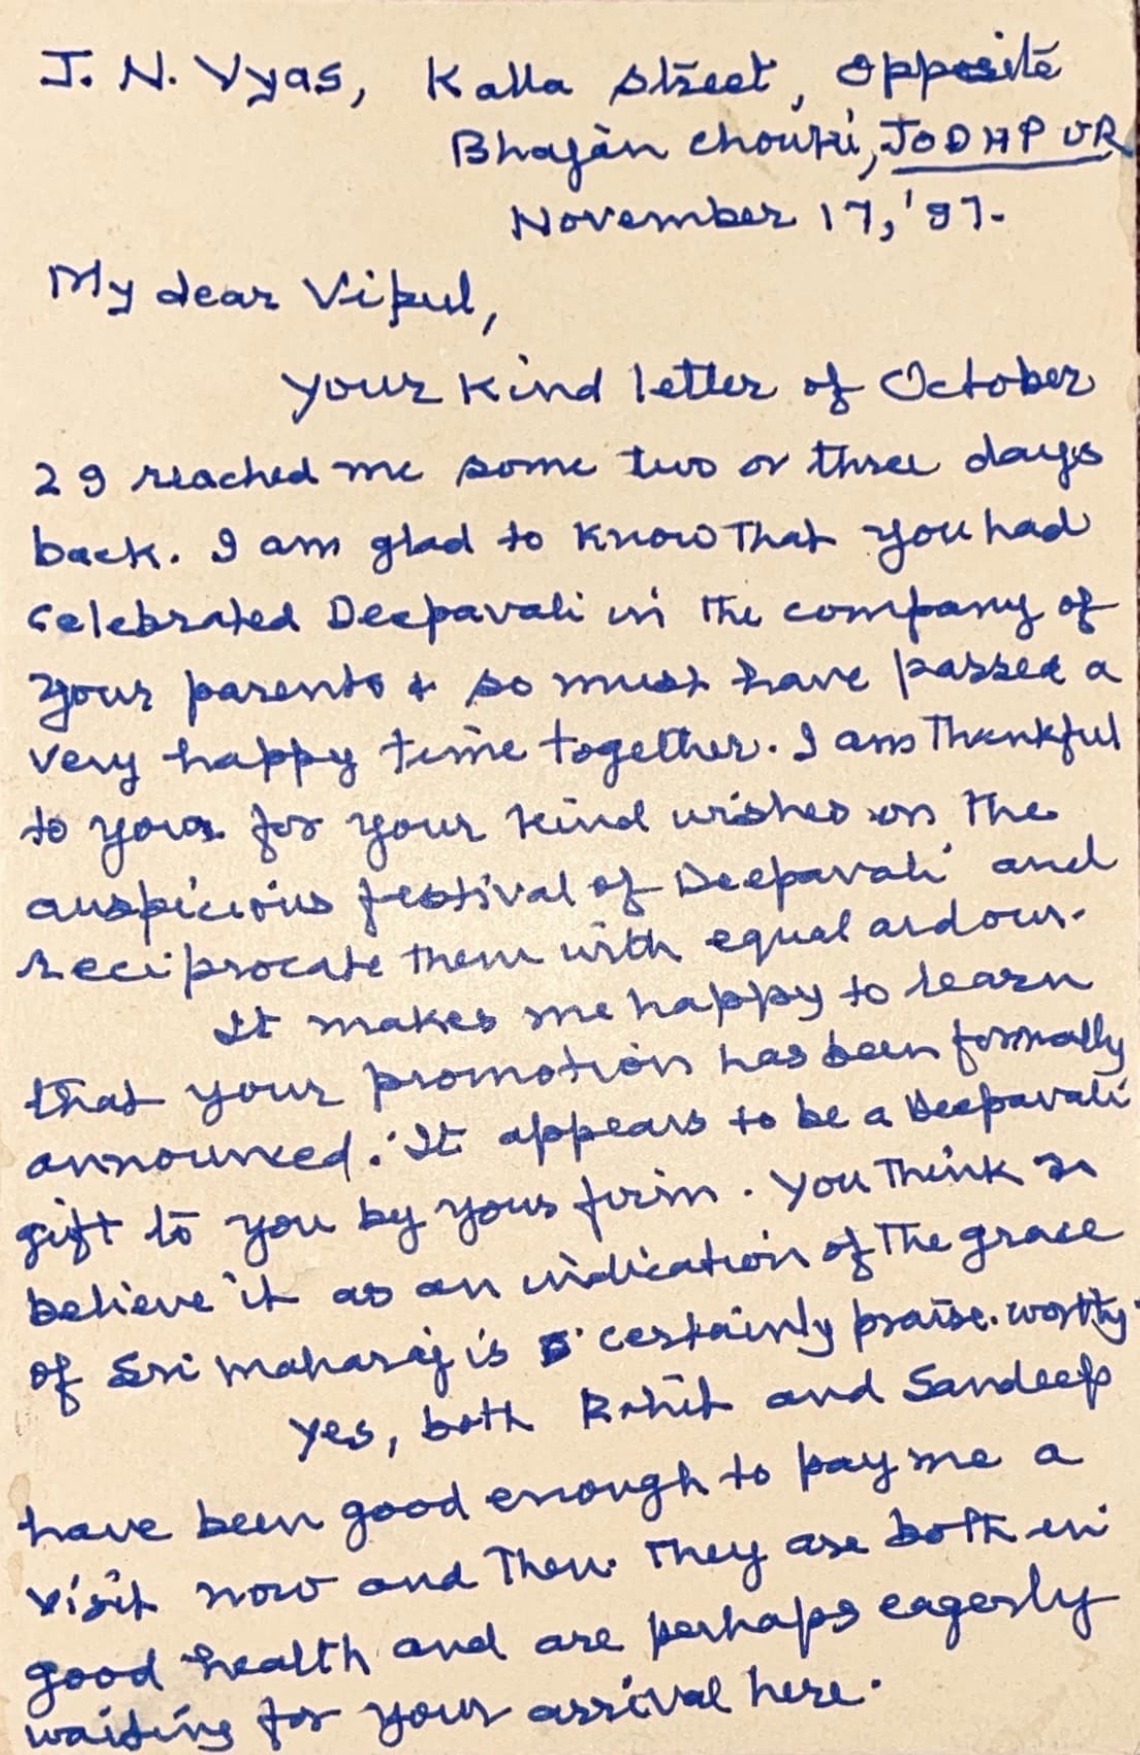 J. N. Vyas, Kalla Street, Opposite
Bhajan Chowki, JODHPUR
November 17, '97.
My dear Vipul,
Your kind letter of October
29 reached me some two or three days
back. I am glad to know that you had
celebrated Deepavali in the company of
your parents & so must have passed a
very happy time together. I am thankful
to you for your kind wishes on the
auspicious festival of Deepavali and
reciprocate them with equal ardour.
It makes me happy to learn
that your promotion has been formally
announced. It appears to be a Deepavali
gift to you by your firm. You think &
believe it as an indication of the grace
of Sri Maharaj is certainly praise-worthy.
Yes, both Rohit and Sandeep
have been good enough to pay me a
visit now and then. They are both in
good health and are perhaps eagerly
waiting for your arrival here.